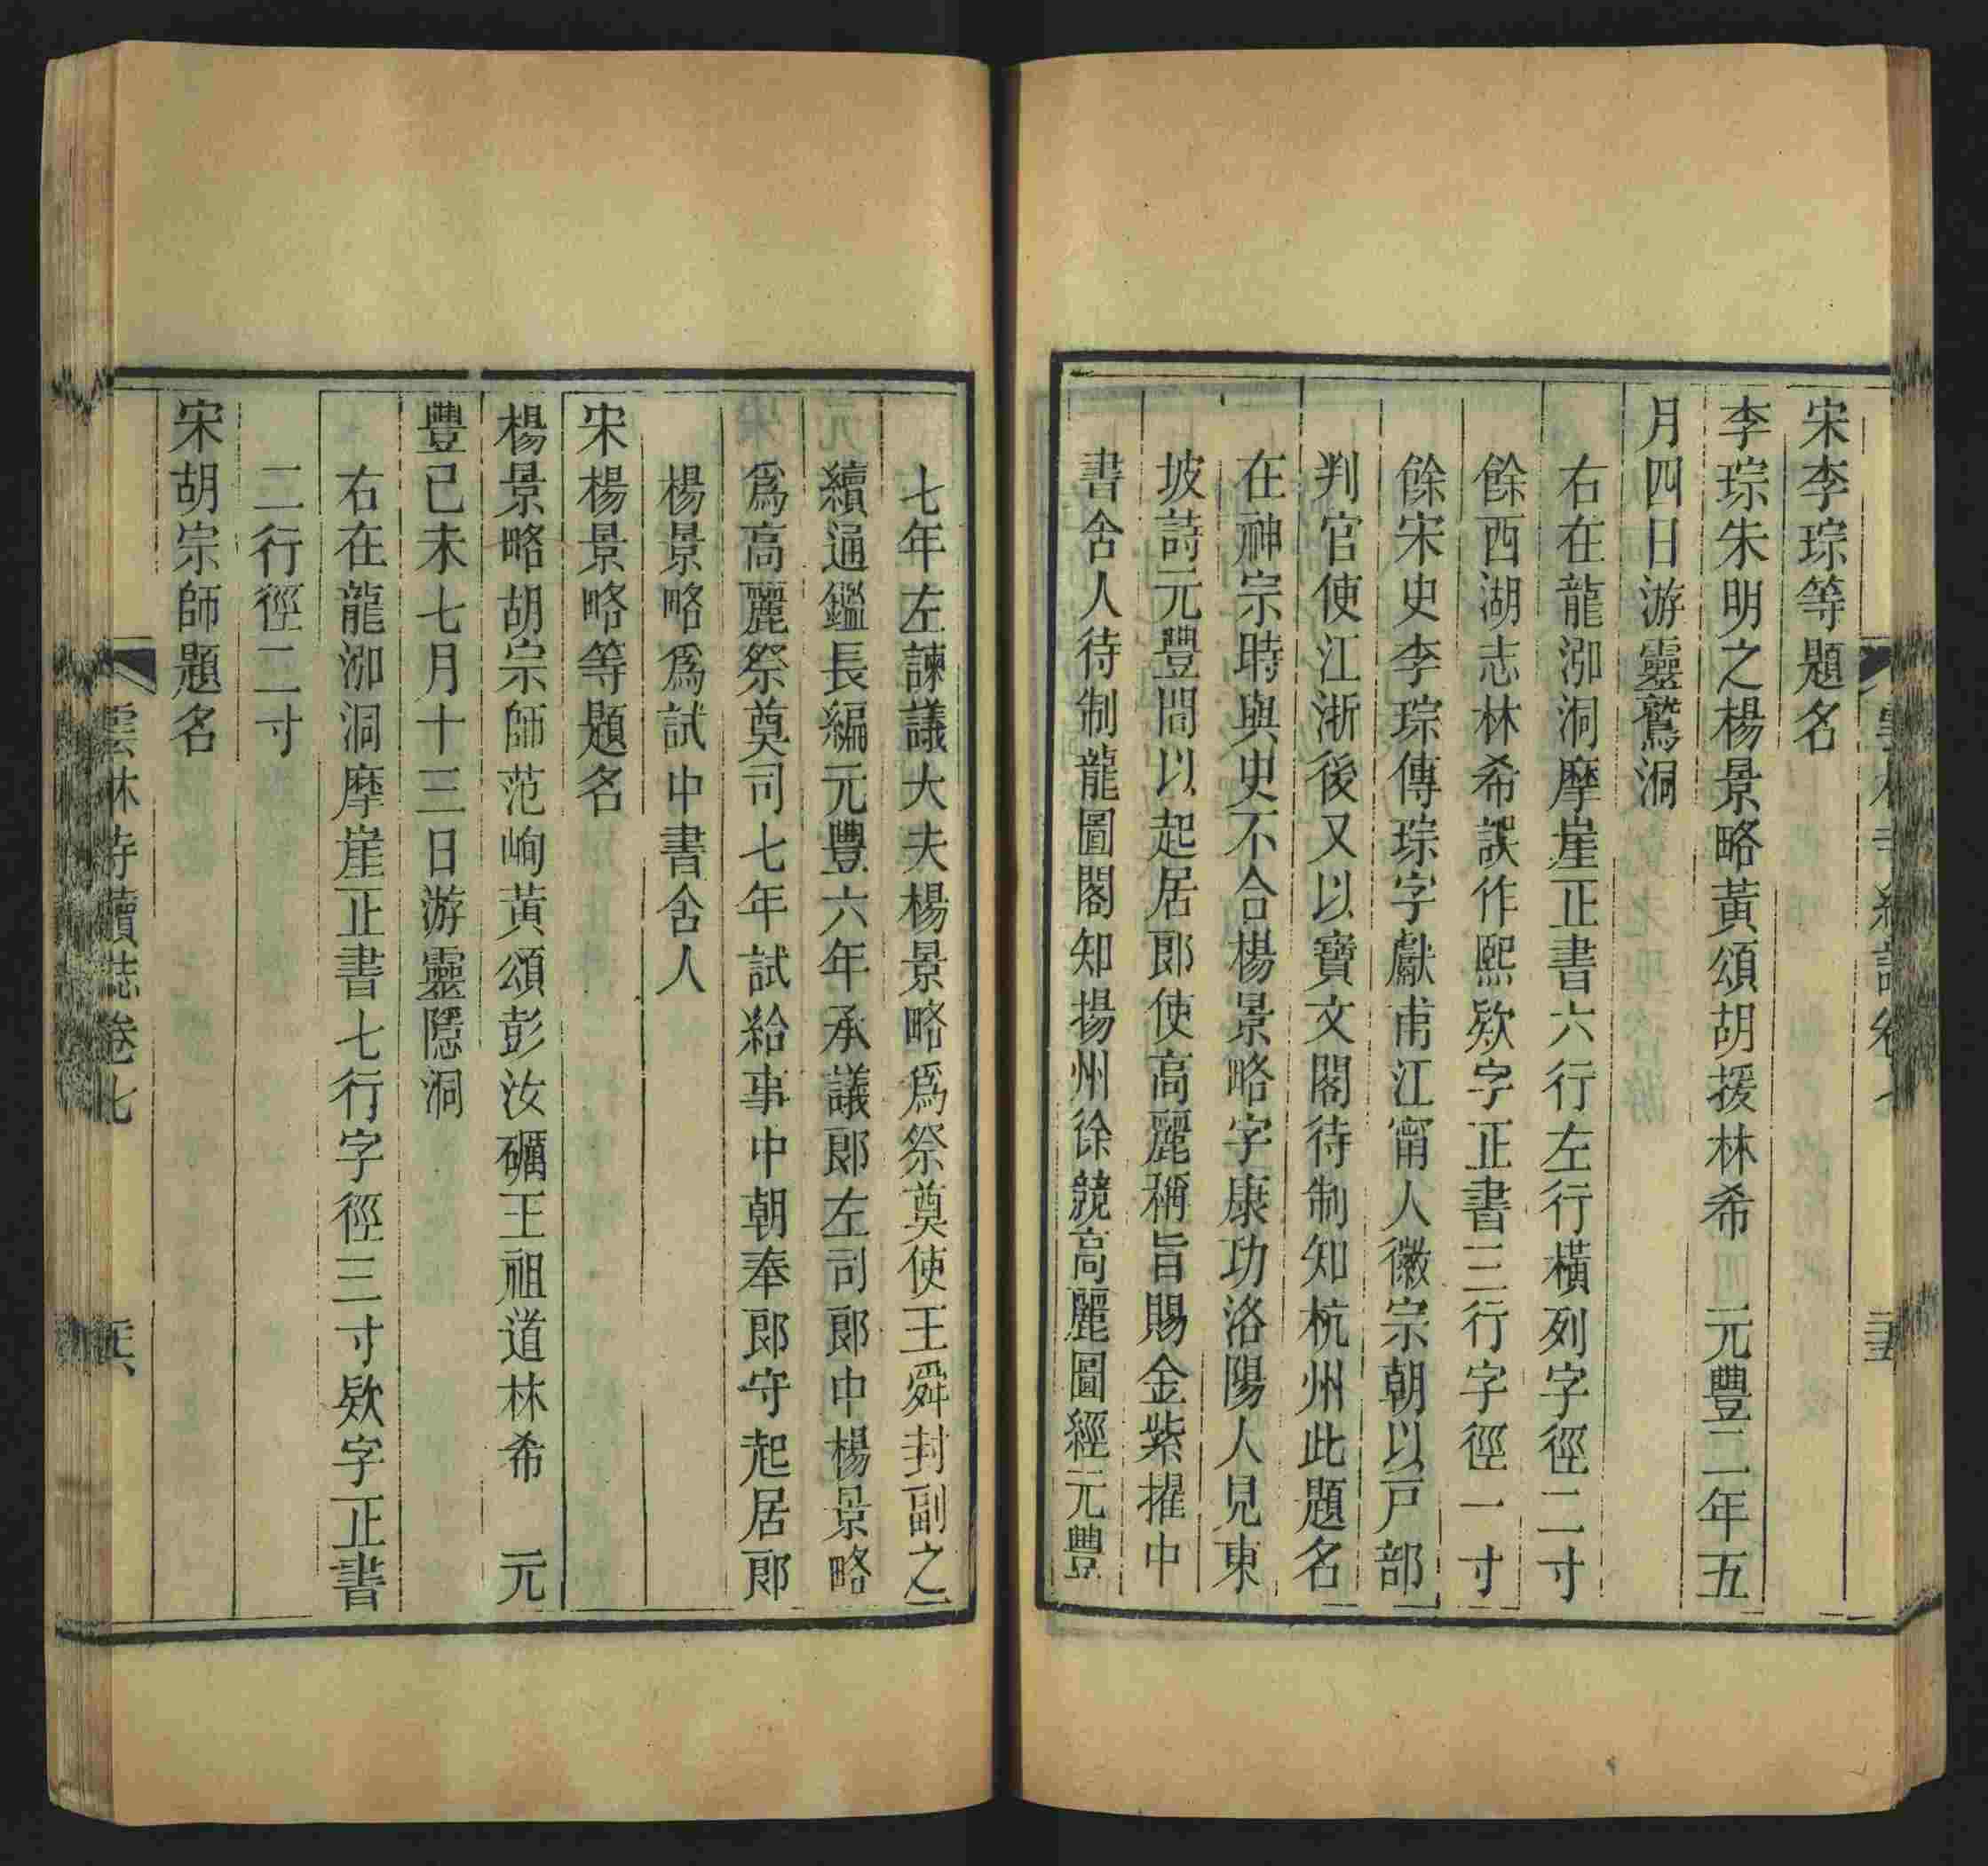 宋李琮等題名
李琮朱明之楊景略黃頌胡援林希 元豐二年五
月四日游靈鷲洞
右在龍泓洞摩崖正書六行左行橫列字徑二寸
餘西湖志林希誤作熙欵字正書三行字徑一寸
餘宋史李琮傳琮字獻甫江甯人徽宗朝以戸部
判官使江浙後又以寶文閣待制知杭州此題名
在神宗時與史不合楊景略字康功洛陽人見東
坡詩元豐間以起居郎使高麗稱旨賜金紫擢中
書舍人待制龍圖閣知揚州徐兢高麗圖經元豐
七年左諫議大夫楊景略爲祭奠使王舜封副之
續通鑑長編元豐六年承議郎左司郎中楊景略
爲高麗祭奠司七年試給事中朝奉郎守起居郎
楊景略爲試中書舍人
宋楊景略等題名
楊景略胡宗師范峋黃頌彭汝礪王祖道林希 元
豐己未七月十三日游靈隱洞
右在龍泓洞摩崖正書七行字徑三寸欵字正書
二行徑二寸
宋胡宗師題名
雲林寺續誌卷七